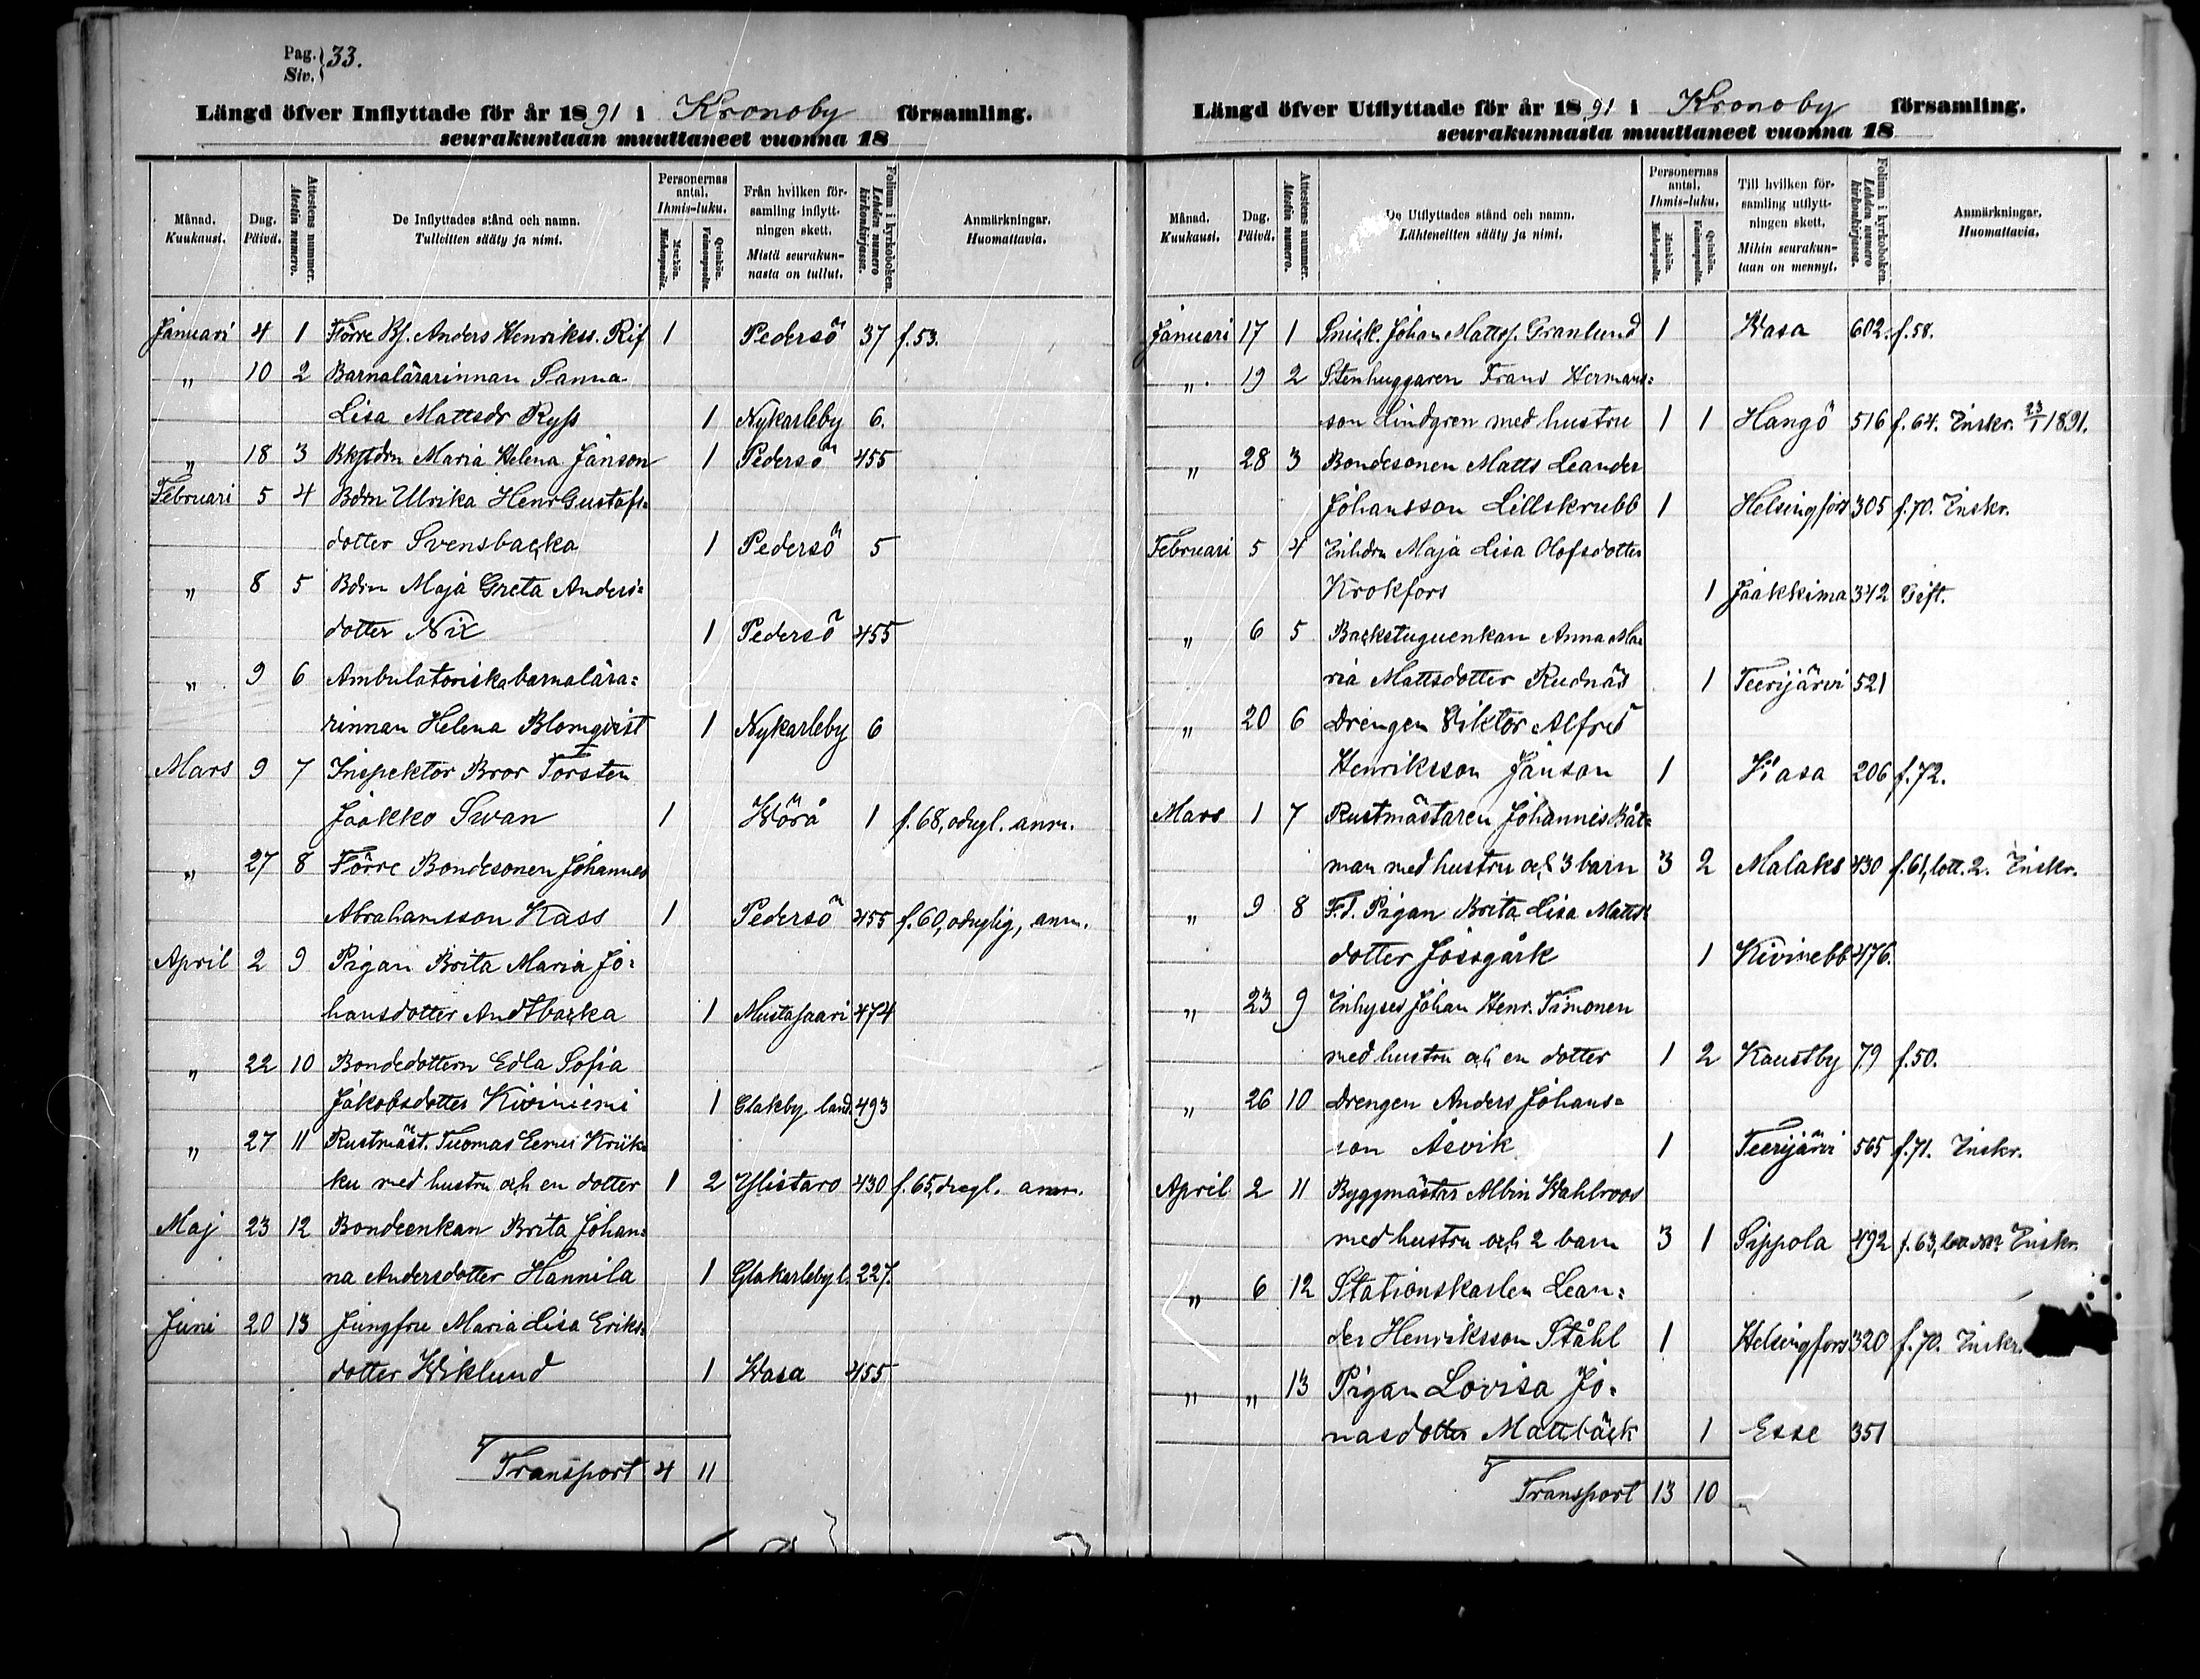 Pag. 33.
Siv.
Längd öfver Inflyttade för år 1891 i Kronoby församling.
seurakuntaan muuttaneet vuonna 18
Månad. Kuukausi. Dag. Päivä. Attestens nummer. Atestin numero. De Inflyttades stånd och namn. Tulleitten sääty ja nimi. Personernas antal. Ihmis-luku. Mankön. Miehenpuolia. Qvinkön. Vaimonpuolia. Från hvilken församling inflyttningen skett. Mistä seurakunnasta on tullut. Folium i kyrkoboken. Lehden numero kirkonkirjassa. Anmärkningar. Huomattavia.
Januari 4 1 Förre Bs. Anders Henrikss. Rif 1 Pedersö 37 f. 53.
" 10 2 Barnalärarinnan Sanna
Lisa Mattsdr Ryss 1 Nykarleby 6.
" 18 3 Maria Helena Janson 1 Pedersö 455
Februari 5 4 Bdrn Ulrika Henr Gustafs-
dotter Svensbacka 1 Pedersö 5
" 8 5 Bdrn Maja Greta Anders=
dotter Nix 1 Pedersö 455
" 9 6 Ambulatoriska barnalära=
rinnan Helena Blomqvist 1 Nykarleby 6
Mars 9 7 Inspektor Bror Torsten
Jaakko Swan 1 Wörå 1 f. 68, odugl. anm.
" 27 8 Förre Bondesonen Johannes
Abrahamsson Kass 1 Pedersö 455 f. 60, oduglig, anm.
April 2 9 Pigan Brita Maria Jo=
hansdotter Andtbacka 1 Mustasaari 474
" 22 10 Bondedottern Edla Sofia
Jakobsdotter Kiviniemi 1 Glakby. land. 493
" 27 11 Rustmäst. Tuomas Eenui Kriik-
ku med hustru och en dotter 1 2 Ylistaro 430 f. 65, dugl. anm.
Maj 23 12 Bondeenkan Brita Johan-
na Andersdotter Hannila 1 Glakarleby l. 227.
Juni 20 13 Jungfru Maria Lisa Eriks-
dotter Wiklund 1 Wasa 455
Transport 4 11
Längd öfver Utflyttade för år 1891 i Kronoby församling.
seurakunnasta muuttaneet vuonna 18
Månad. Kuukausi. Dag. Päivä. Attestens nummer. Atestin numero. De Utflyttades stånd och namn. Lähteneitten sääty ja nimi. Personernas antal. Ihmis-luku. Mankön. Miehenpuolia. Qvinkön. Vaimonpuolia. Till hvilken församling utflyttningen skett. Mihin seurakuntaan on mennyt. Folium i kyrkoboken. Lehden numero kirkonkirjassa. Anmärkningar. Huomattavia.
Januari 17 1 Snick. Johan Mattss. Granlund 1 Wasa 602. f. 58.
" 19 2 Stenhuggaren Frans Hermans=
son Lindgren med hustru 1 1 Hangö 516 f. 64. Inskr. 23/1 1891.
" 28 3 Bondesonen Matts Leander
Johansson Lillskrubb 1 Helsingfors 305 f. 70. Inskr.
Februari 5 4 Inhdrn Maja Lisa Olofsdotter
Krokfors 1 Jaakkima 342 Gift.
" 6 5 Backstuguenkan Anna Ma-
ria Mattsdotter Rudnäs 1 Teerijärvi 521
" 20 6 Drengen Viktor Alfred
Henriksson Janson 1 Wasa 206 f. 72.
Mars 1 7 Rustmästaren Johannes Båt=
man med hustru och 3 barn 3 2 Malaks 430 f. 61, lott. 2. Inskr.
" 9 8 F. d. Pigan Brita Lisa Matts-
dotter Jossgårk 1 Kivinebb 476.
" 23 9 Inhyses Johan Henr. Timonen
med hustru och en dotter 1 2 Kaustby 79 f. 50.
" 26 10 Drengen Anders Johans=
son Åsvik 1 Teerijärvi 565 f. 71. Inskr.
April 2 11 Byggmästar Albin Wahlroos
med hustru och 2 barn 3 1 Sippola 492 f. 63, Inskr.
" 6 12 Stationskarlen Lean=
der Henriksson Ståhl 1 Helsingfors 320 f. 70. Inskr.
" " 13 Pigan Lovisa Jo-
nasdotter Mattbäck 1 Esse 351
Transport 13 10